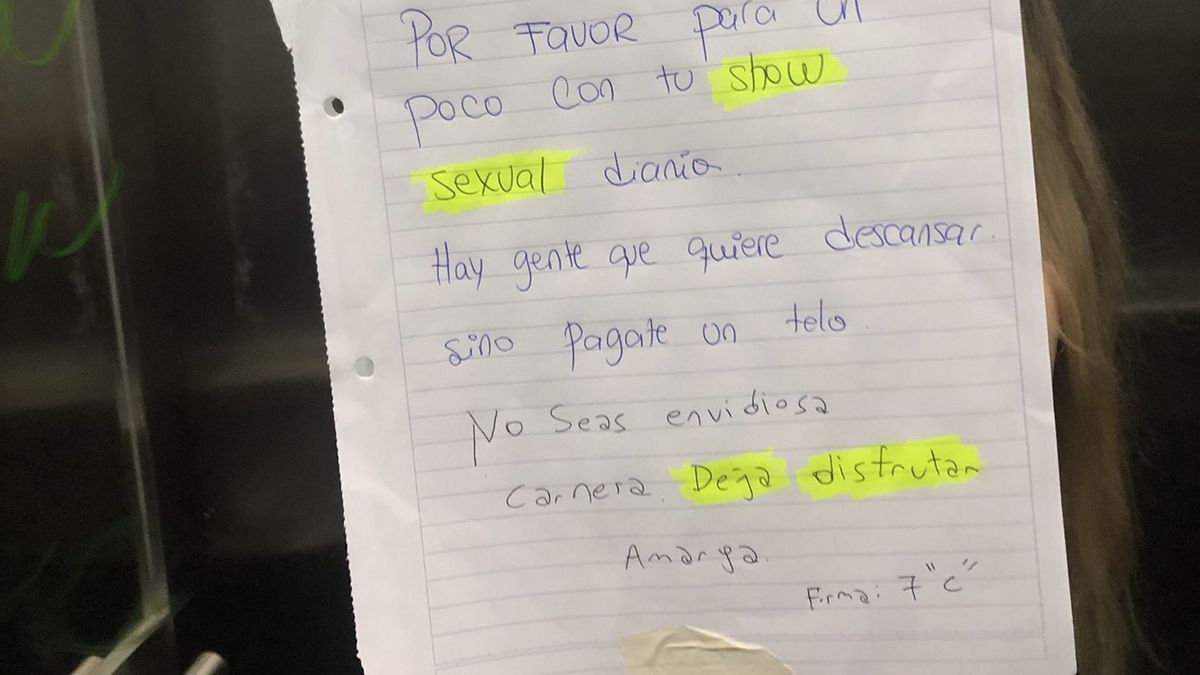 POR FAVOR para un
poco con tu show
sexual diario.
Hay gente que quiere descansar.
sino pagate un telo.
No Seas envidiosa
carnera. Deja disfrutar
Amarga.
Firma: 7 "C"